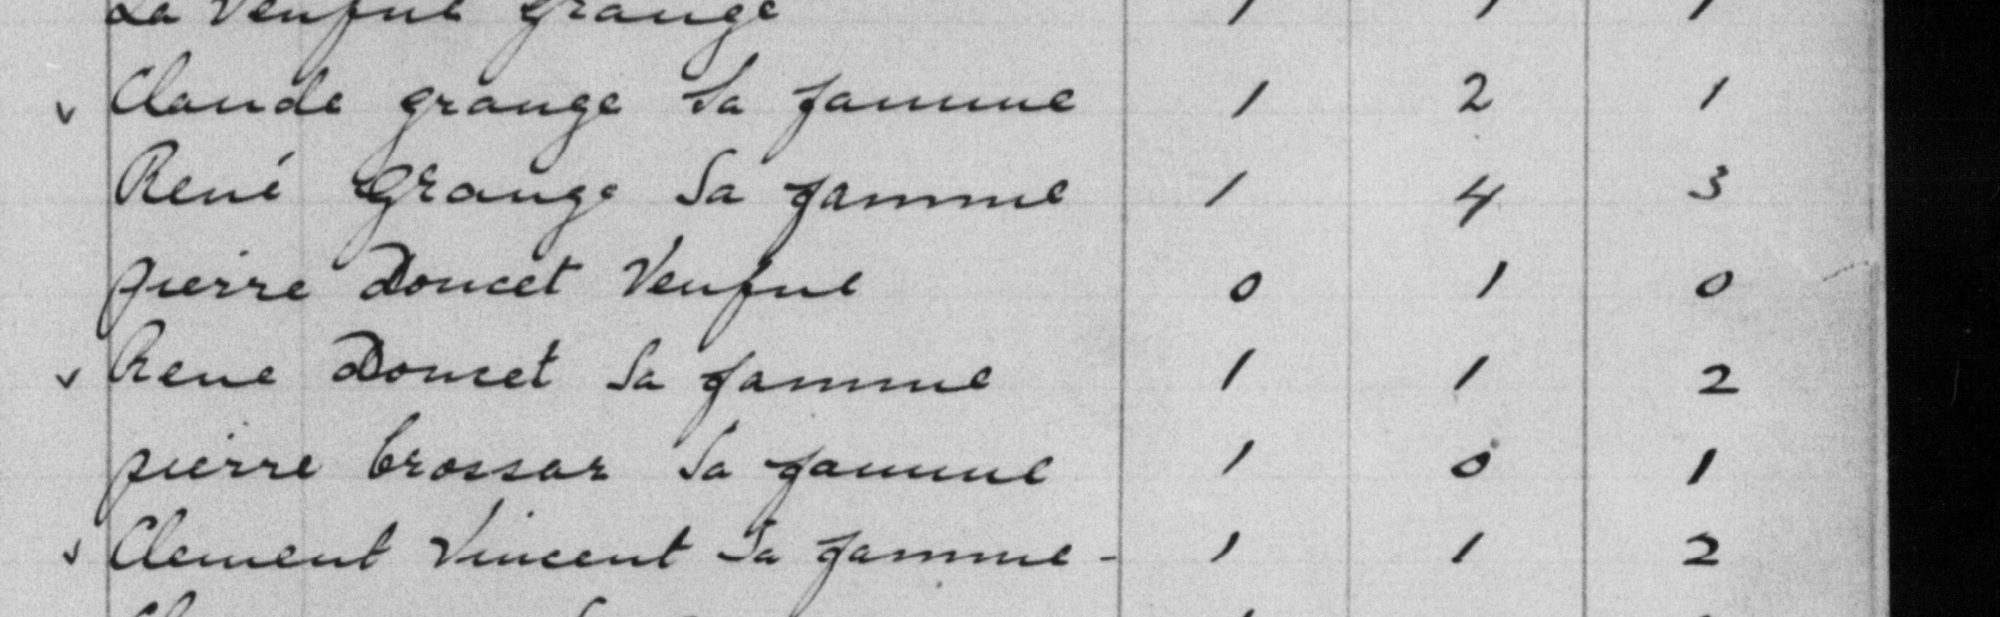 La Veufue Grange 1 1 1
v Claude grange Sa famme 1 2 1
René Grange Sa famme 1 4 3
pierre Doucet Veufue 0 1 0
v Rene Doucet Sa famme 1 1 2
pierre brossar Sa famme 1 0 1
v Clement Vincent Sa famme - 1 1 2